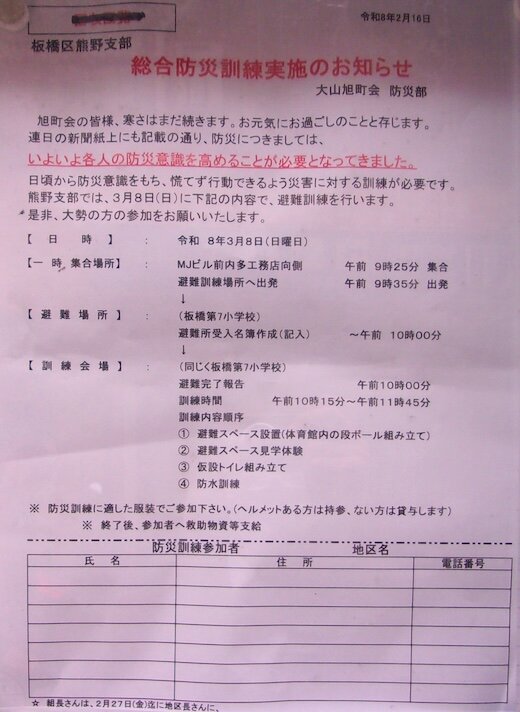 令和8年2月16日
板橋区熊野支部
総合防災訓練実施のお知らせ
大山旭町会 防災部
旭町会の皆様、寒さはまだ続きます。お元気にお過ごしのことと存じます。
連日の新聞紙上にも記載の通り、防災につきましては、
いよいよ各人の防災意識を高めることが必要となってきました。
日頃から防災意識をもち、慌てず行動できるよう災害に対する訓練が必要です。
熊野支部では、3月8日(日)に下記の内容で、避難訓練を行います。
是非、大勢の方の参加をお願いいたします。
【 日 時 】 : 令和 8年3月8日(日曜日)
【一時集合場所】 : MJビル前内多工務店向側 午前 9時25分 集合
避難訓練場所へ出発 午前 9時35分 出発
↓
【 避 難 場 所 】 : (板橋第7小学校)
避難所受入名簿作成(記入) ~午前 10時00分
↓
【 訓 練 会 場 】 : (同じく板橋第7小学校)
避難完了報告 午前10時00分
訓練時間 午前10時15分~午前11時45分
訓練内容順序
① 避難スペース設置(体育館内の段ボール組み立て)
② 避難スペース見学体験
③ 仮設トイレ組み立て
④ 防水訓練
※ 防災訓練に適した服装でご参加下さい。(ヘルメットある方は持参、ない方は貸与します)
※ 終了後、参加者へ救助物資等支給
防災訓練参加者 地区名
氏 名 住 所 電話番号
☆ 組長さんは、2月27日(金)迄に地区長さんに、